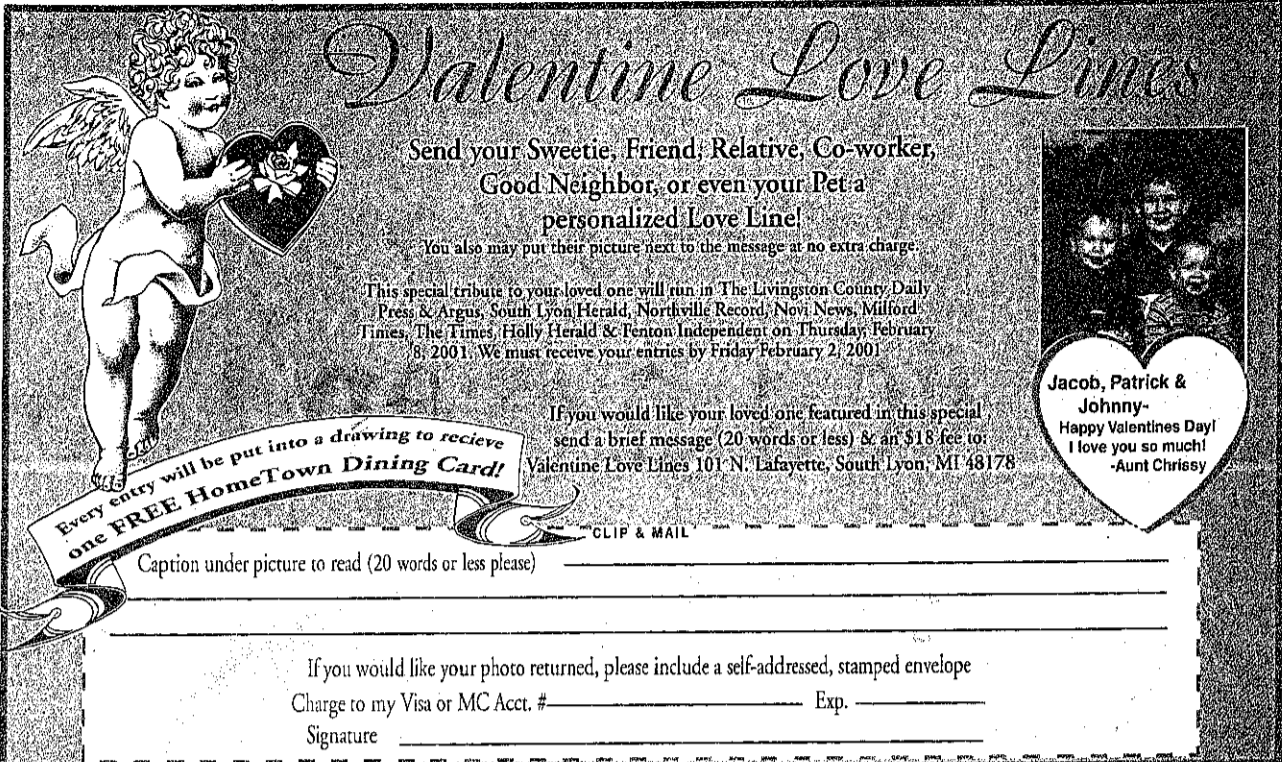 Valentine Love Lines
Send your Sweetie, Friend, Relative, Co-worker,
Good Neighbor, or even your Pet a
personalized Love Line!
You also may put their picture next to the message at no extra charge.
This special tribute to your loved one will run in The Livingston County Daily
Press & Argus, South Lyon Herald, Northville Record, Novi News, Milford
Times, The Times, Holly Herald & Fenton Independent on Thursday, February
8, 2001. We must receive your entries by Friday February 2, 2001
If you would like your loved one featured in this special
send a brief message (20 words or less) & an $18 fee to:
Valentine Love Lines 101 N. Lafayette, South Lyon, MI 48178
Jacob, Patrick &
Johnny-
Happy Valentines Day!
I love you so much!
-Aunt Chrissy
Every entry will be put into a drawing to recieve
one FREE HomeTown Dining Card!
CLIP & MAIL
Caption under picture to read (20 words or less please)
If you would like your photo returned, please include a self-addressed, stamped envelope
Charge to my Visa or MC Acct. # Exp.
Signature